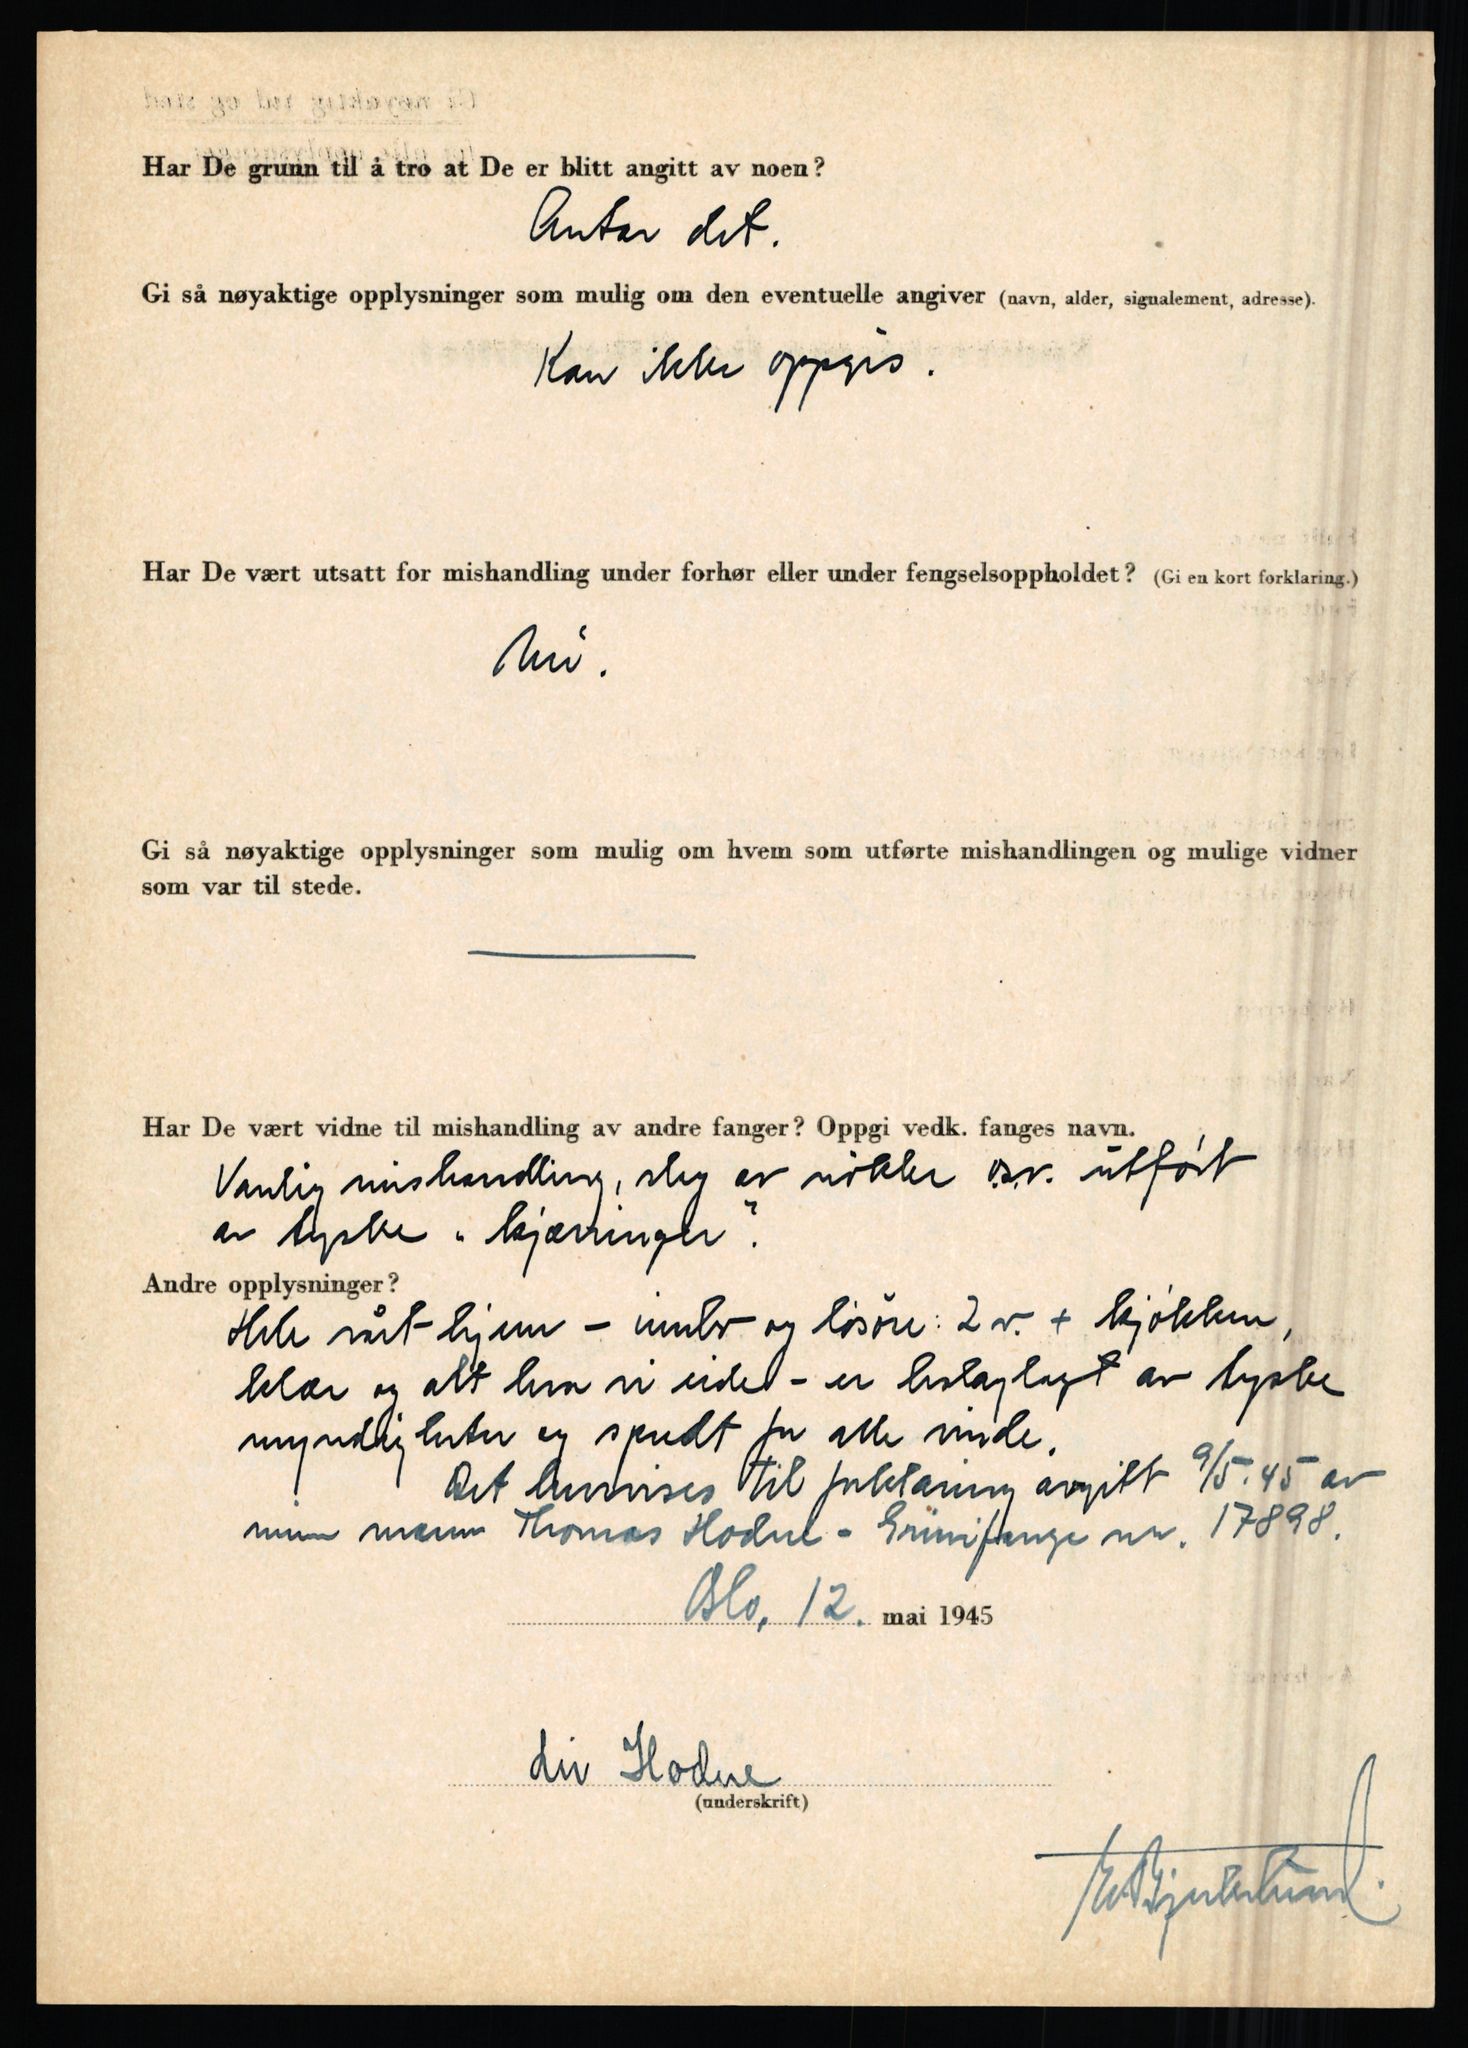 Har De grunn til å tro at De er blitt angitt av noen?
Antar det.
Gi så nøyaktige opplysninger som mulig om den eventuelle angiver (navn, alder, signalement, adresse).
Kan ikke oppgis.
Har De vært utsatt for mishandling under forhør eller under fengselsoppholdet? (Gi en kort forklaring.)
Nei.
Gi så nøyaktige opplysninger som mulig om hvem som utførte mishandlingen og mulige vidner
som var til stede.
Har De vært vidne til mishandling av andre fanger? Oppgi vedk. fanges navn.
Vanlig mishandling, slag av nøkler o.s.v. utført
av tyske „kjærringer”.
Andre opplysninger?
Hele vårt hjem – innbo og løsøre: 2 v. + kjøkken,
klær og alt hva vi eide – er beslaglagt av tyske
myndigheter og spredt for alle vinde.
Det henvises til forklaring avgitt 9/5.45 av
min mann Thomas Hodne – Grinifange nr. 17898.
Oslo, 12. mai 1945
Liv Hodne
(underskrift)